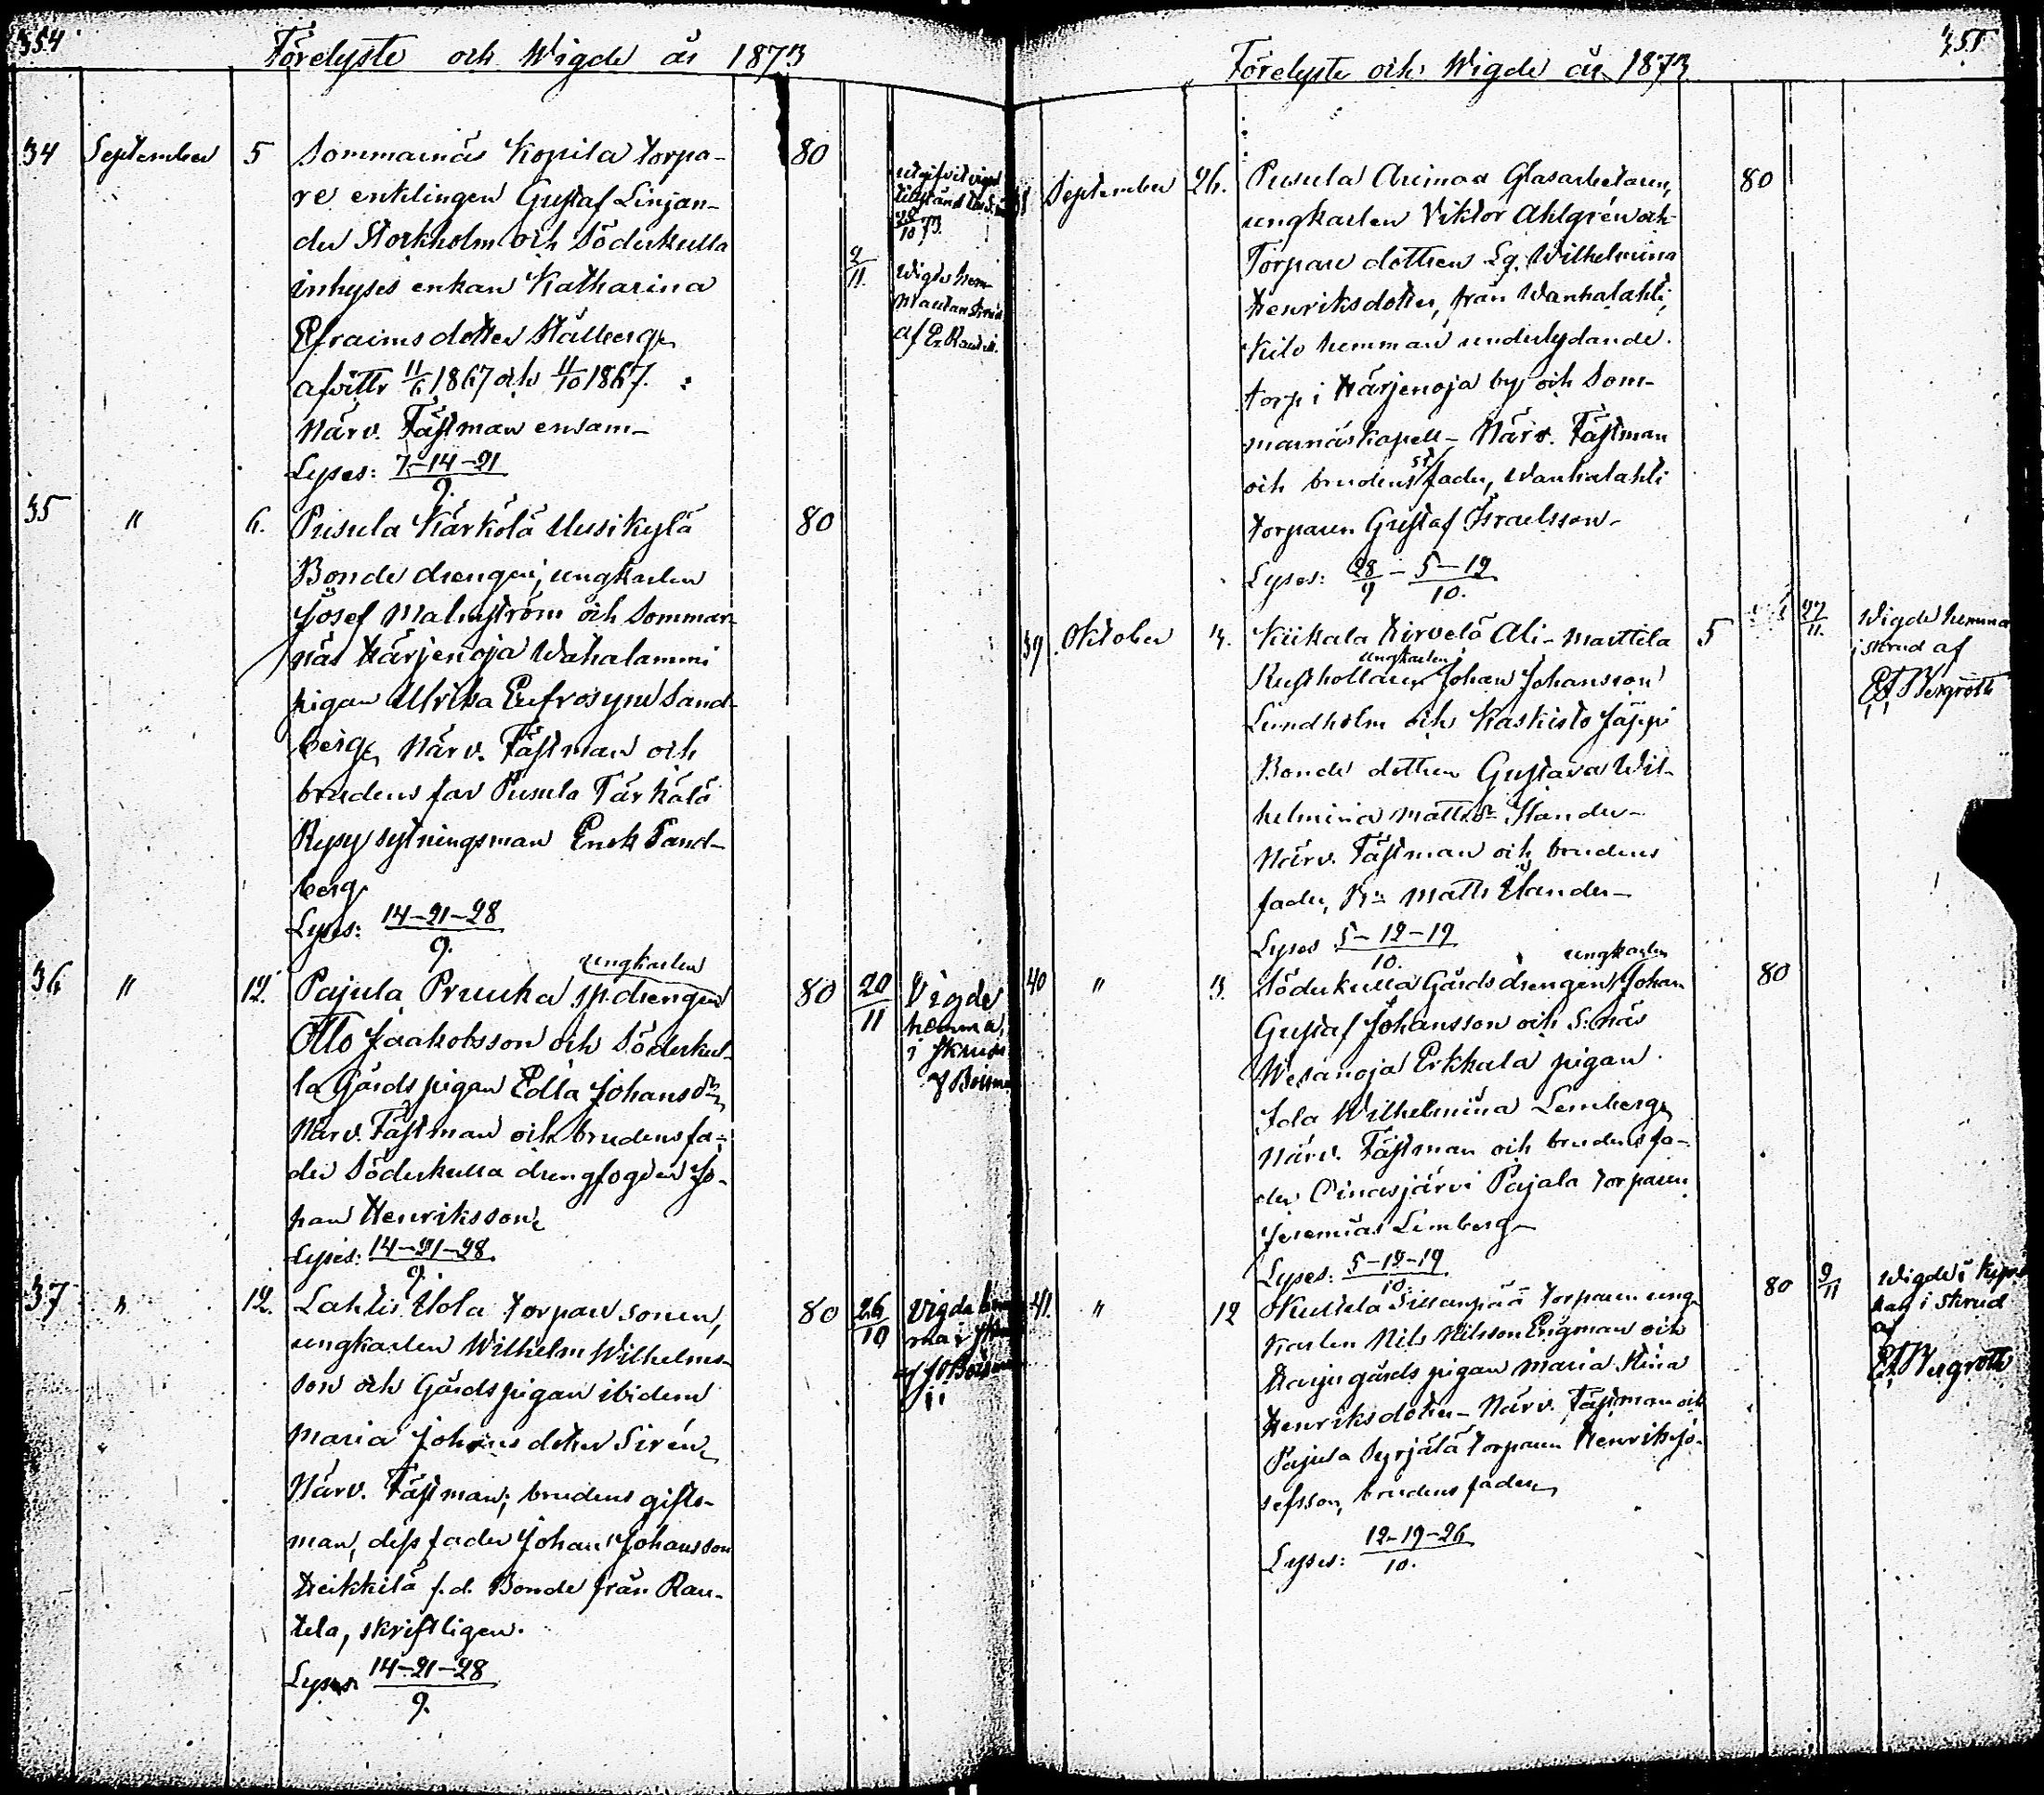 354
Förelyste och Wigde år 1873
34 September 5 Sommarnäs Kopila torpa- 80
re enklingen Gustaf Linjan-
der Storkholm och Söderkulla
inhyses enkan Katharina
Efraimsdotter Stålberg,
afvittr 11/6 1867 och 11/10 1867.
Närv. Fästman ensam-
Lyses: 7-14-21
9.
2/11. Wigde hem-
ma utan skrud
af
35 " 6. Pusula Kärkölä Uusikylä 80
Bonde drengen, ungkarlen
Josef Malmström och Sommar-
näs Härjenoja Wahalammi
pigan Ulrika Eufrosyne Sand-
berg, Närv. Fästman och
brudens far Pusula Tärkölä
Rypy sytningsman Enok Sand-
berg
Lyses: 14-21-28
9.
ungkarlen
36 " 12. Pajula Pruuka sp. drengen 80 20/11 Vigde
Otto Jaakobsson och Söderkul- hemma,
la Gårds pigan Edla Johansdr, i skrud
Närv. Fästman och brudens fa-
der Söderkulla drengfogden Jo-
han Henriksson,
Lyses: 14-21-28
9.
37 " 12. Lahtis Ilola torpare sonen, 80 26/10
ungkarlen Wilhelm Wilhelms-
son och Gårdspigan ibidem
Maria Johansdotter Sirén,
Närv. Fästman; brudens gifto-
man, dess fader Johan Johansson
Heikkilä f.d. Bonde från Rau-
tela, skriftligen.
Lyses 14-21-28
9.
355
Förelyste och Wigde år 1873
38 September 26. Pusula Arimaa Glasarbetaren, 80
ungkarlen Viktor Ahlgrén och
Torpare dottren Eg. Wilhelmina
Henriksdotter, från Wanhalahti,
Kilo hemman underlydande
torp i Härjenoja by och Som-
marnäs kapell- Närv. Fästman
och brudens fader, Wanhalahti
torparen Gustaf Israelsson-
Lyses: 28/9 - 5-12
10.
39 Oktober 3. Kiikala Hirvelä Ali-Marttila 5 27/11. Wigde hemma
ungkarlen
Rusthollaren Johan Johansson i skrud af
Lundholm och Kaskisto Jäppi Bergroth
Bonde dottren Gustava Wil-
helmina Mattsdr Ilander-
Närv. Fästman och brudens
fader, Bn Matts Ilander-
Lyses 5-12-19
10.
ungkarlen
40 " 3. Söderkulla Gårdsdrengen Johan 80
Gustaf Johansson och S:näs
Wesanoja Erkkala pigan
Ida Wilhelmina Lemberg,
Närv. Fästman och brudens fa-
der Oinasjärvi Pajala torparen
Jeremias Lemberg-
Lyses: 5-12-19
10.
41. " 12 Kultela Sillanpää torparen ung- 80 9/11 Wigde i
karlen Nils Nilsson Engman och i skrud
Harju gårds pigan Maria Stina af
Henriksdotter- Närv. Fästman och Bergroth
Pajula Syrjälä torparen Henrik Jo-
sefsson, brudens fader,
Lyses: 12-19-26
10.